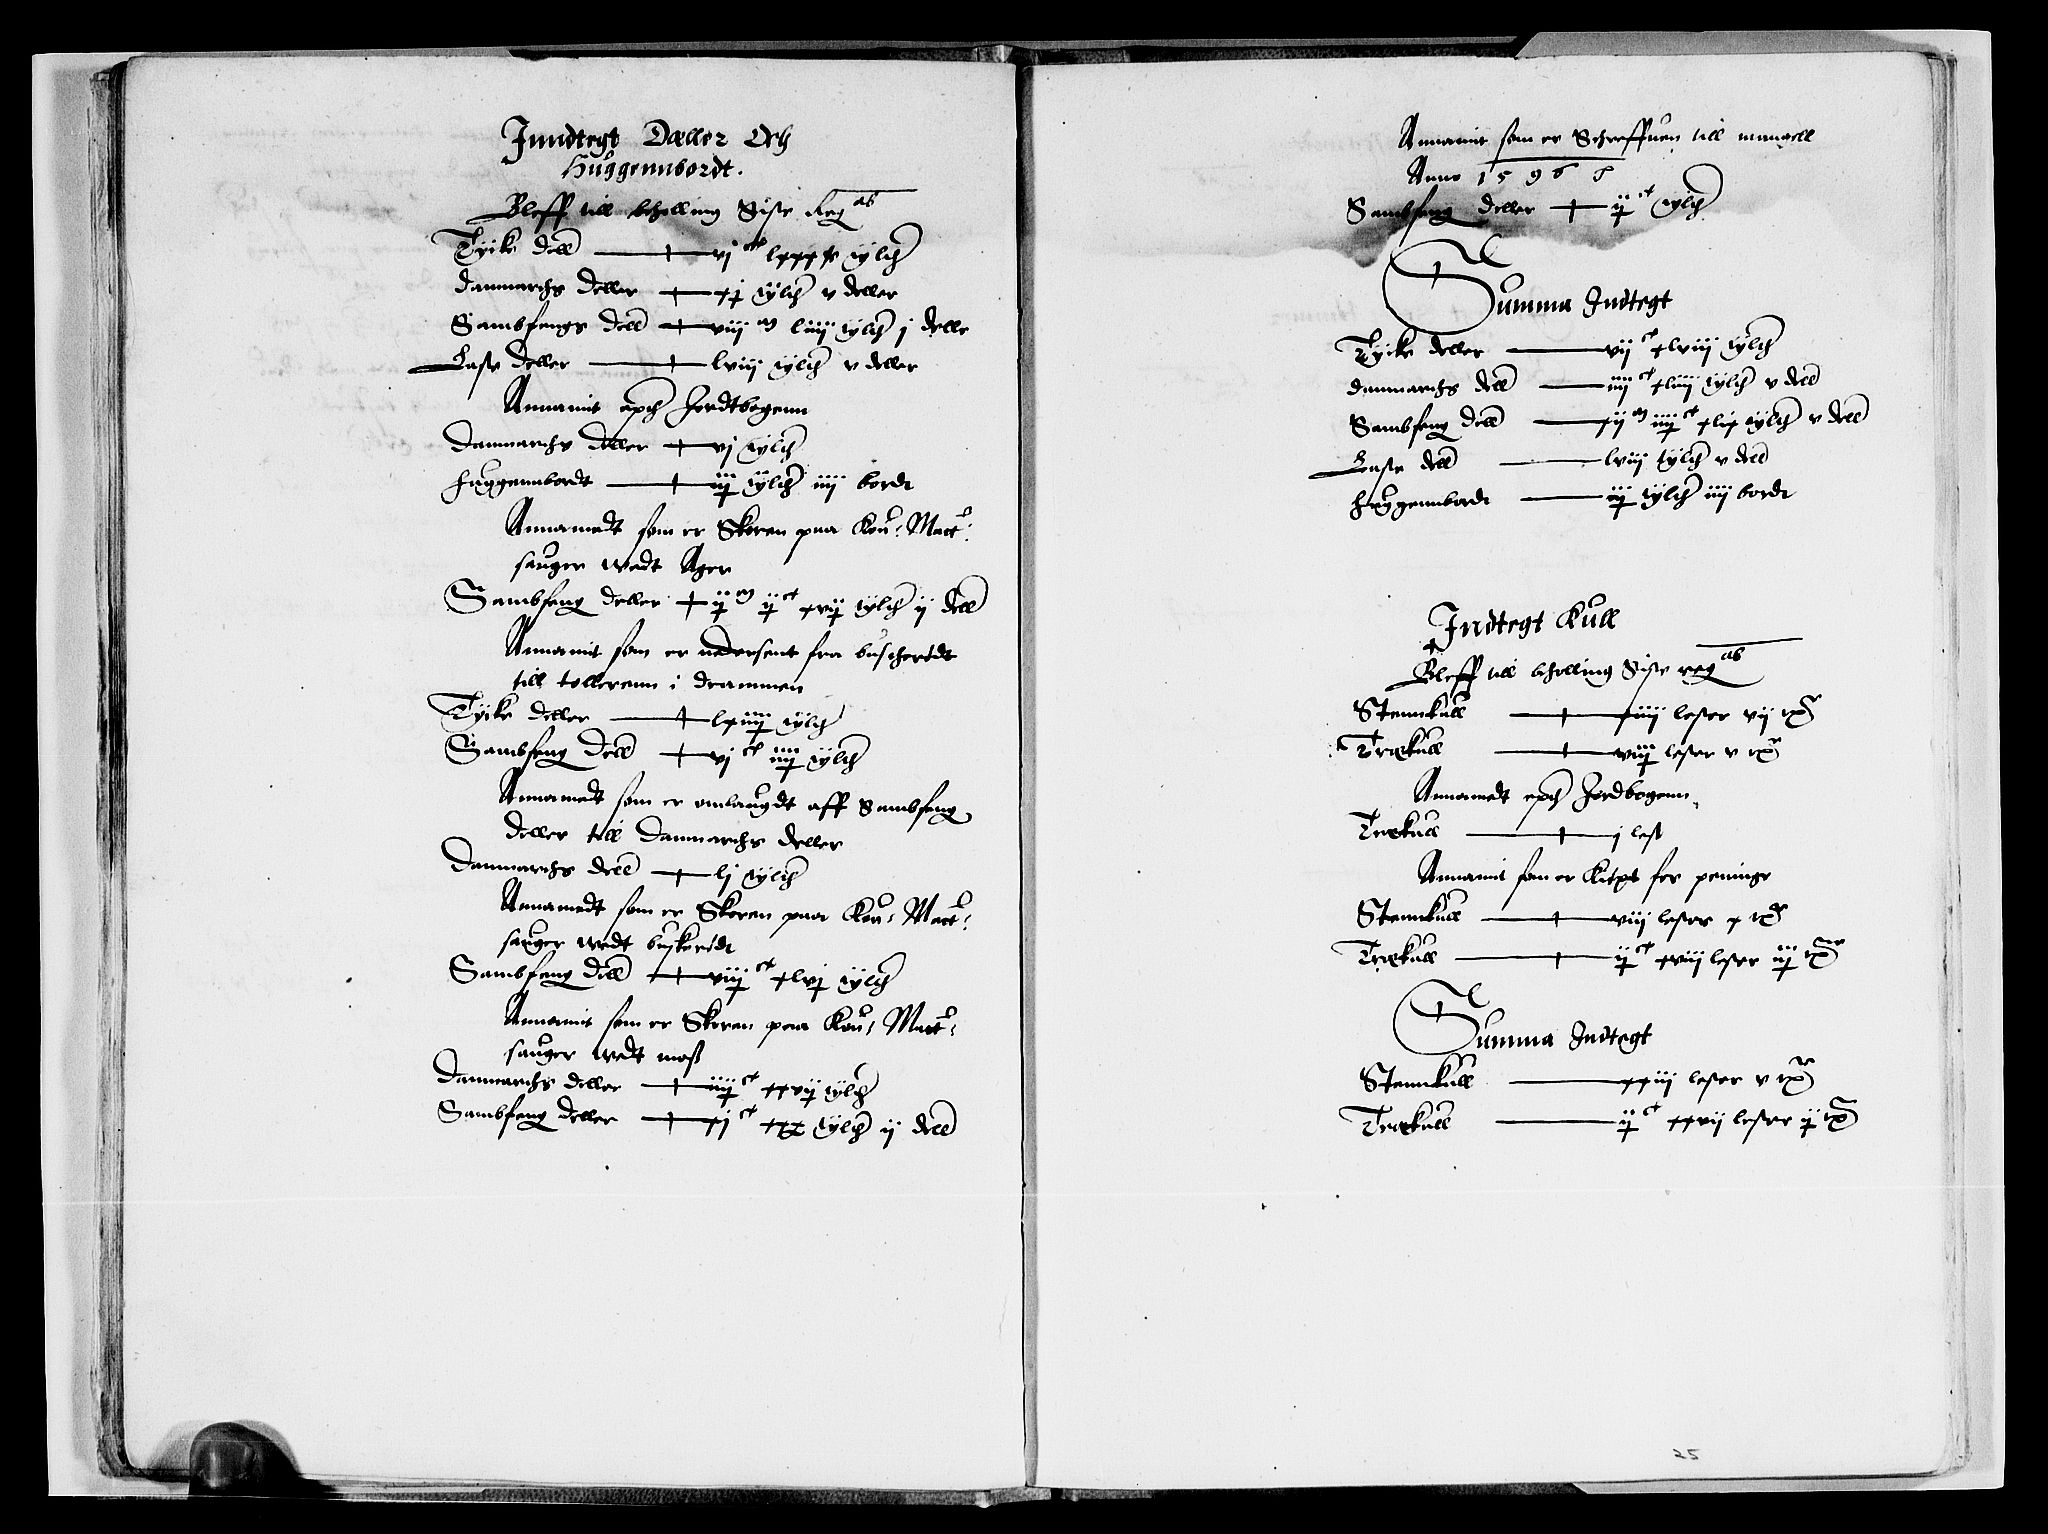 Inndtegt Dæller Och
Huggennbordt.
Bleff till beholling Siste Reg ab
Tycke dell vj ct lxxx tylch
Danmarchs deller xj tylch v deller
Sambfengs dell viij m liiij tylch j delle
Laste deller lviij tylch v deller
Annamit epch Jordtbogenn
Danmarchs deller vj tylch
Huggennbordt iij tylch iiij bordt
Annamedt som er Skoren paa Kou: Matt:
sauger wedt Ager
Sambfeng deller ij m ij ct xvij tylch ij dell
Annamit som er nedersent fra buscherødt
till tollerenn i drammen
Tycke deller lxiiij tylch
Sambfeng dell vj ct iiij tylch
Annamedt som er omlaugdt aff Sambfeng
deller till Danmarchs deller
Danmarchs dell lj tylch
Annamedt som er Skoren paa Kou: Matt:
sauger wedt buskerødt
Sambfeng dell viij ct xlvj tylch
Annamit som er Skoren paa Kou: Matt:
sauger wedt moss
Danmarchs deller iiij ct xxvij tylch
Sambfeng deller xj ct xxx tylch ij dell
Annamit som er Schreffuen till mangell
Anno 1596
Sambfeng deller ij ct tylch
Summa Indtegt
Tycke deller vij ct xlviij tylch
Danmarchs dell iiij ct xliiij tylch v dell
Sambfeng dell xij m iiij ct xlix tylch v dell
Laste dell lviij tylch v dell
Huggennbordt iij tylch iiij bordt
Indtegt Kull
Bleff till beholling Siste reg ab
Stennkull xiiij lester vij tr
Trækull viij lester v tr
Annamedt epch Jordbogenn
Trækull j lest
Annamit som er Kiøpt for peninge
Stennkull viij lester x tr
Trækull ij ct xviij lester iij tr
Summa Indtegt
Stennkull xxiij lester v tr
Trækull ij ct xxvij lester ij tr
25